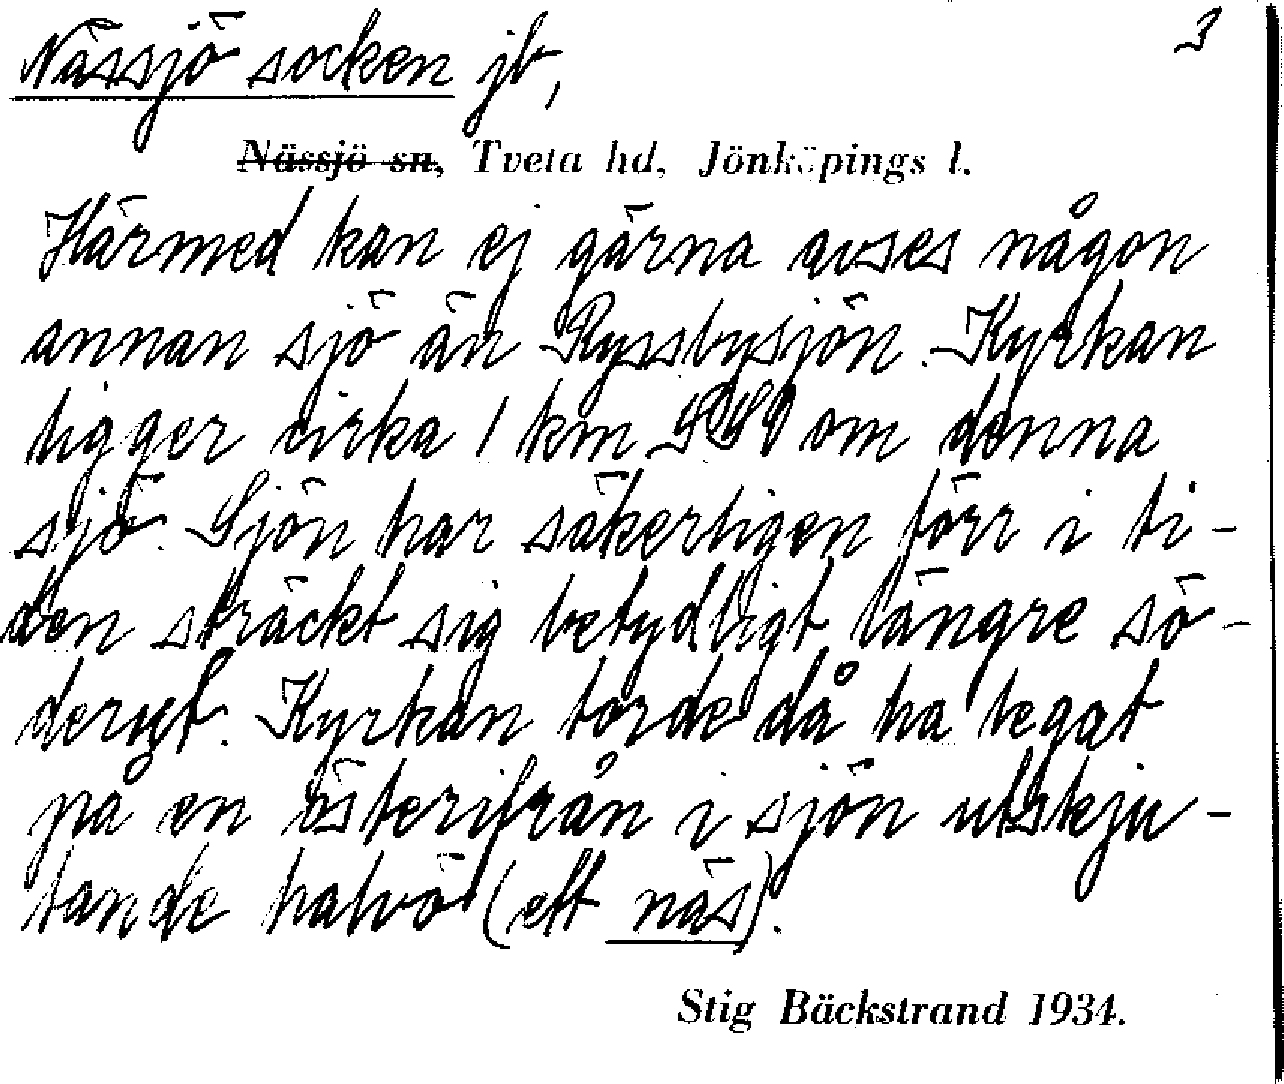 Nässjö socken jb, 3
Nässjö sn, Tveta hd, Jönköpings l.
Härmed kan ej gärna avses någon
annan sjö än Ryssbysjön. Kyrkan
ligger cirka 1 km om denna
sjö. Sjön har säkerligen förr i ti-
den sträckt sig betydligt längre sö-
derut. Kyrkan torde då ha legat
på en österifrån i sjön utskju-
tande halvö (ett näs).
Stig Bäckstrand 1934.